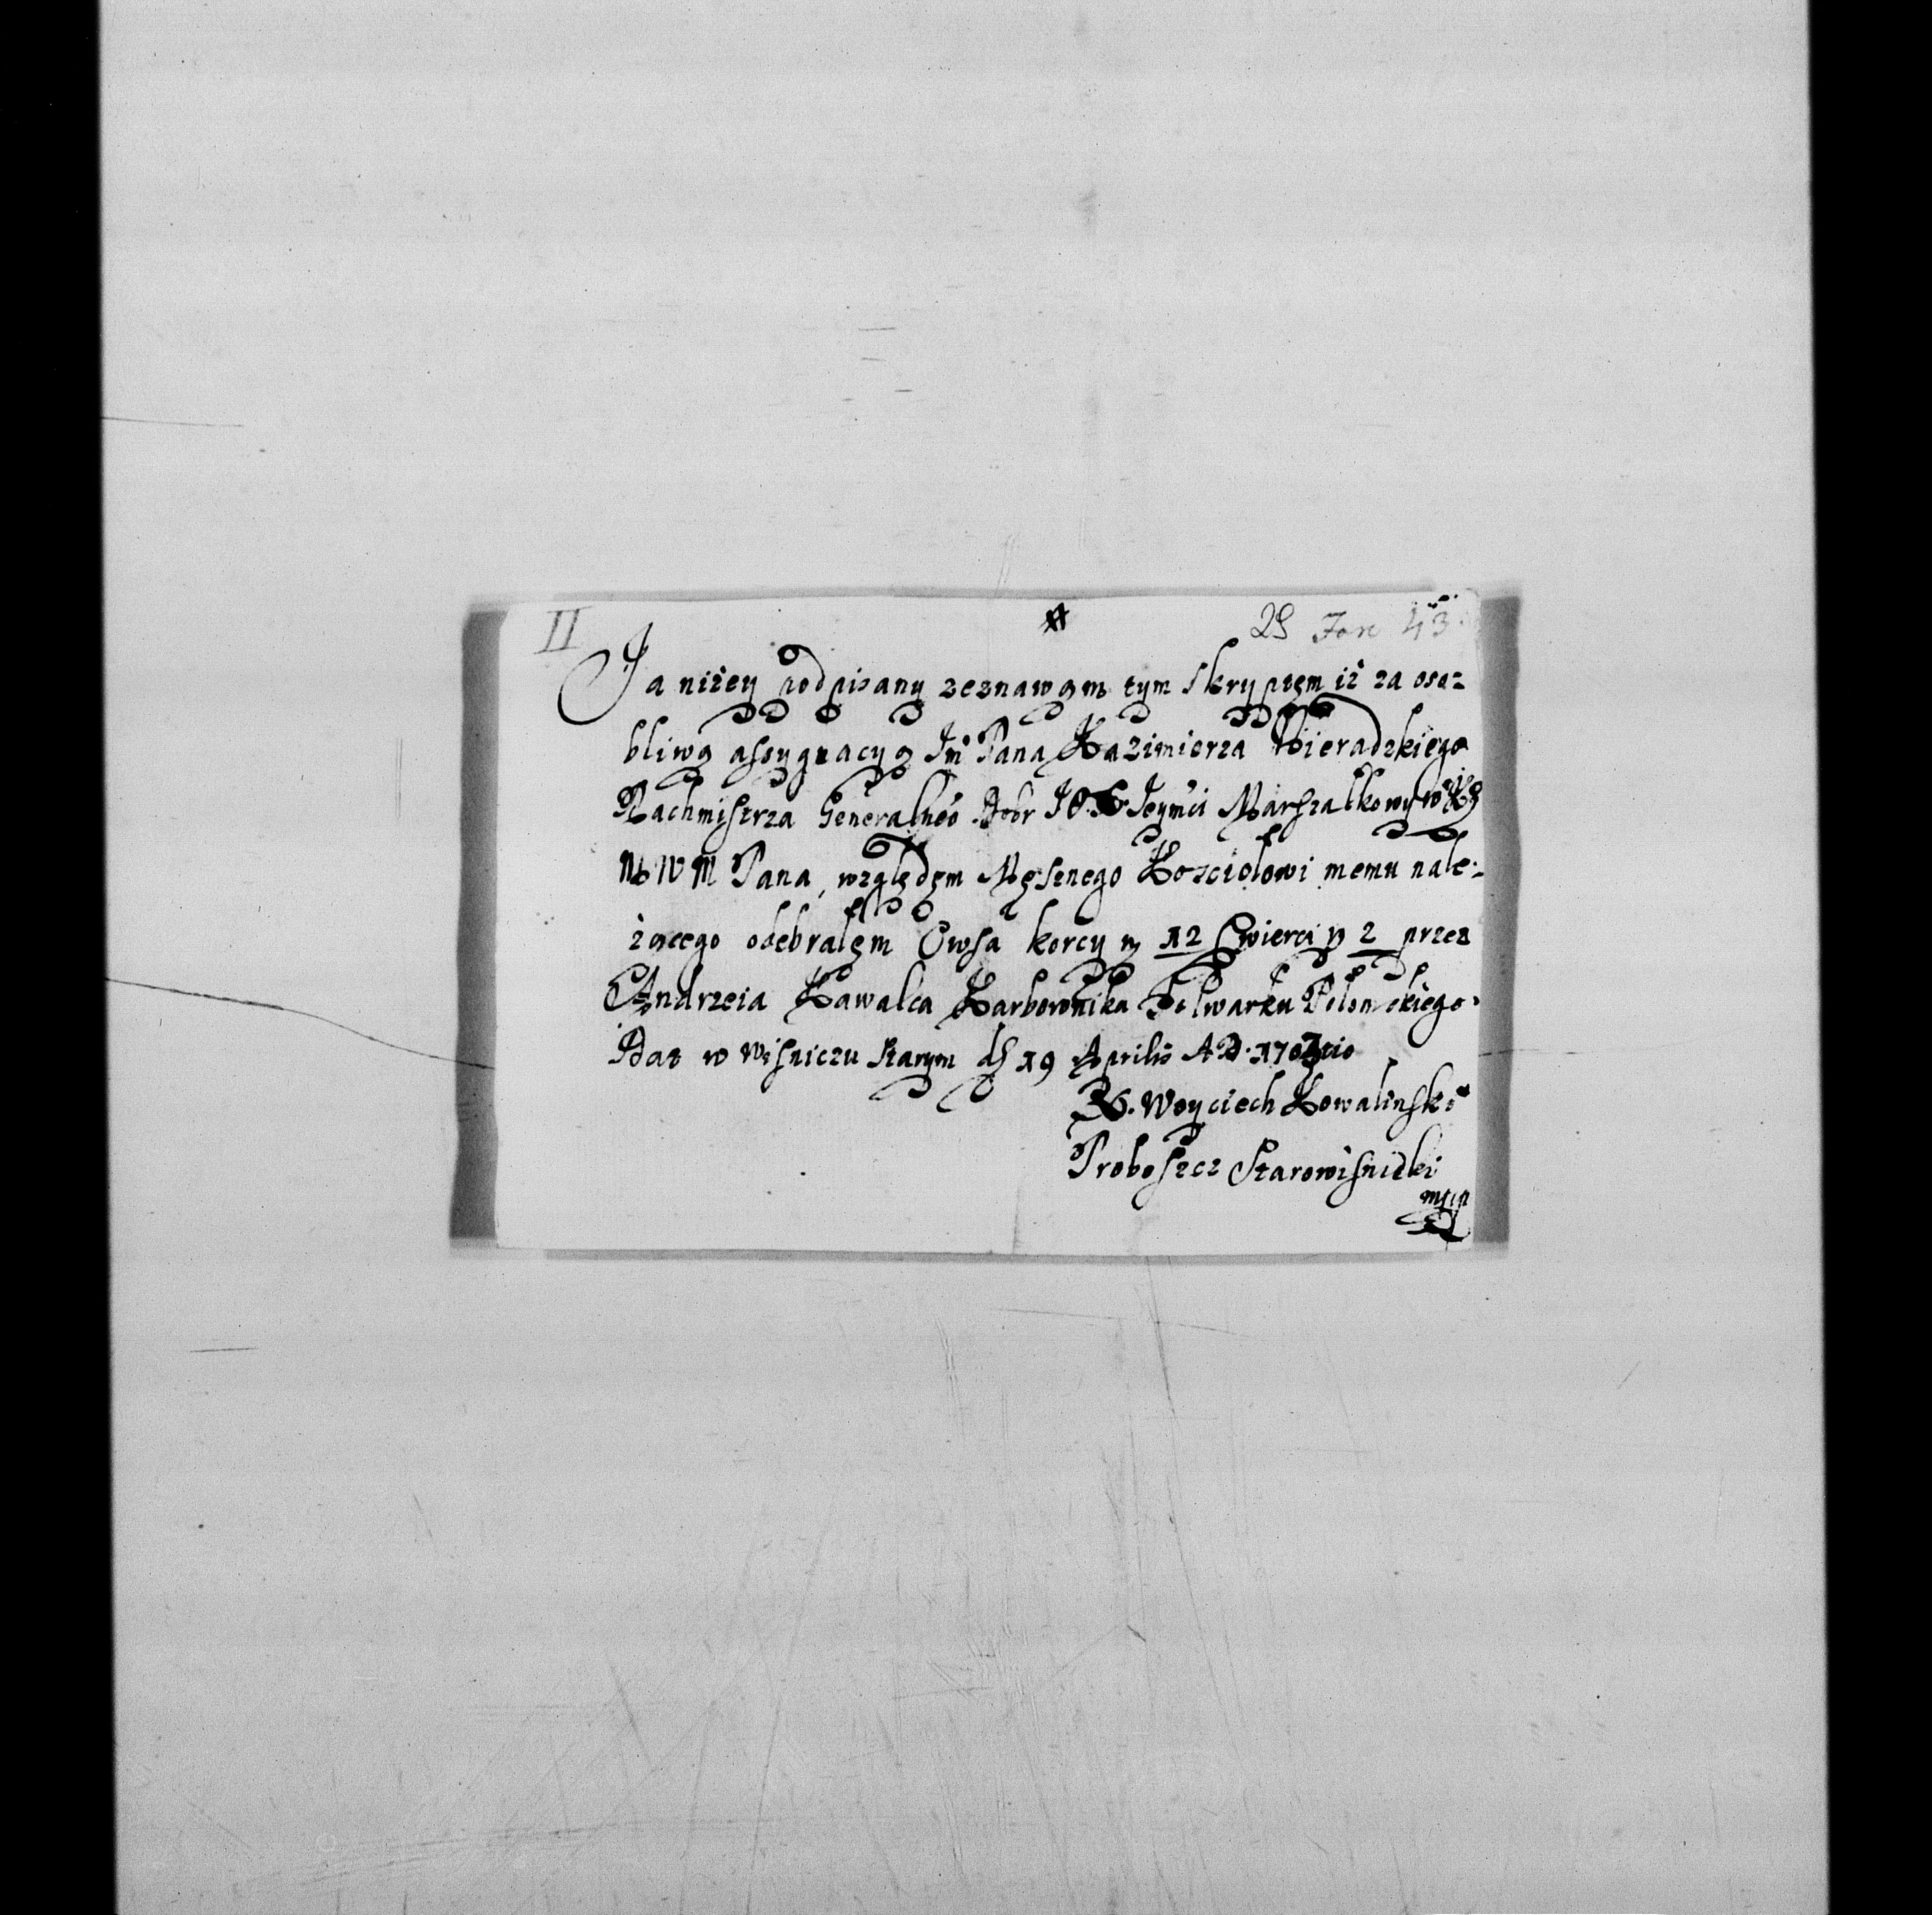 II 29 For 43
Ja niżey podpisany zeznawam tym skryptem iż za oso-
bliwą assygnacyą Jm Pana Kazimierza Wieradzkiego
Rachmistrza Generalneo Dobr J O X Jeymci Marszałkowy W Kę
M W M Pana, względem Mesznego Kosciołowi memu nale-
żącego odebrałem Owsa korcy n 12 Cwierci n 2 przez
Andrzeia Kawalca Karbownika Folwarku Polomskiego.
Dat w Wisniczu Starym d 19 Aprilis A D. 1703tio
X. Woyciech Kowalinski
Proboszcz Starowisnicki
mpp